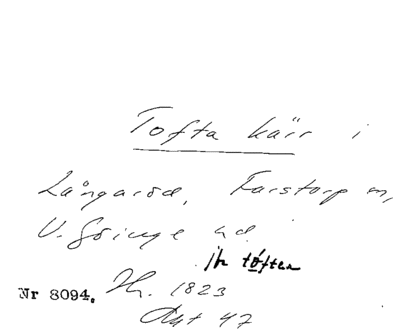 Tofta kärr i
Långaröd, Farstorp sn,
V. Göinge hd.
jfr töften
Nr 8094. Hr. 1823
Akt 47